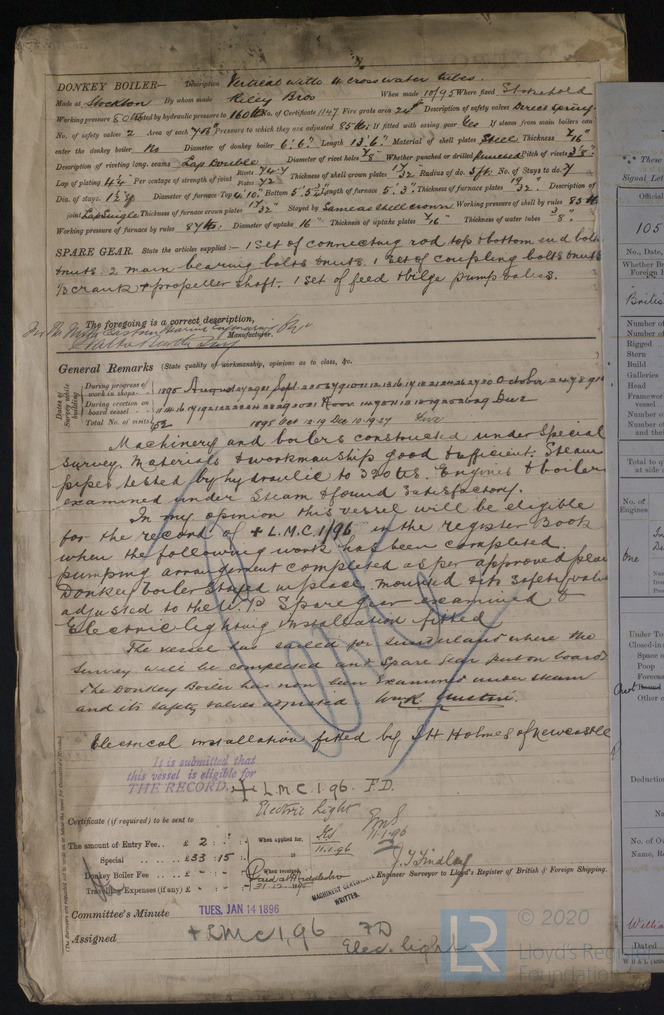 DONKEY BOILER— Description Vertical with 4 cross water tubes.
Made at Stockton By whom made Riley Bros When made 10/95 Where fixed Stokehold
Working pressure 80 lbs tested by hydraulic pressure to 160 lbs No. of Certificate 1147 Fire grate area 24 Description of safety valves Direct Spring
No. of safety valves 2 Area of each Pressure to which they are adjusted 85 lbs If fitted with easing gear Yes If steam from main boilers can
enter the donkey boiler No Diameter of donkey boiler 6'.6" Length 13'.6" Material of shell plates Steel Thickness 7/16"
Description of riveting long. seams Lap Double Diameter of rivet holes 7/8" Whether punched or drilled Pitch of rivets 3 1/8"
Lap of plating 4 1/4 Per centage of strength of joint Rivets 74.7 Plates 72 Thickness of shell crown plates 17/32 Radius of do. 5 ft. No. of Stays to do. 7
Dia. of stays. Diameter of furnace Top 4'.10" Bottom Length of furnace 5'.3" Thickness of furnace plates 19/32" Description of
joint Lap Single Thickness of furnace crown plates 17/32" Stayed by Same as shell crown Working pressure of shell by rules 85 lbs
Working pressure of furnace by rules 87 lbs. Diameter of uptake 16" Thickness of uptake plates 7/16" Thickness of water tubes 3/8"
SPARE GEAR. State the articles supplied:— 1 Set of connecting rod top & bottom end bolts
& nuts 2 main bearing bolts & nuts. 1 set of coupling bolts & nuts
crank & propeller shaft. 1 set of feed & bilge pump valves.
The foregoing is a correct description,
For the North Eastern Marine Engineering Co
Manufacturer.
General Remarks (State quality of workmanship, opinions as to class, &c.
Dates of Survey while building
During progress of work in shops-- 1895 August Sept. October
During erection on board vessel---
Total No. of visits 52 1895 Oct Dec 10.19.27
Machinery and boilers constructed under Special
Survey. Materials & workmanship good & efficient. Steam
pipes tested by hydraulic to 320 lbs. Engines & boilers
examined under Steam & found Satisfactory.
In my opinion this vessel will be eligible
for the record of + L.M.C. 1/96 in the register Book
when the following work has been completed.
pumping arrangement completed as per approved plan
Donkey boiler Stayed in place. mounted & its Safety valve
adjusted to the W.P. Spare gear examined &
Electric lighting Installation fitted
The vessel has sailed for Sunderland where the
Survey will be completed and Spare Gear put on board.
The Donkey Boiler has now been Examined under steam
and its safety valves adjusted.
Electrical installation fitted by J H Holmes of Newcastle
It is submitted that
this vessel is eligible for
THE RECORD. + L.M.C 1.96. F.D.
Electric light
11.1.96
Certificate (if required) to be sent to
The amount of Entry Fee.. £ 2 : " :
Special .. £33 : 15 :
Donkey Boiler Fee .. £ - : - :
Travelling Expenses (if any) £ - : - :
When applied for,
11.1.96
When received,
31.12.1895
J. T. Findlay
Engineer Surveyor to Lloyd's Register of British & Foreign Shipping.
MACHINERY CERTIFICATE
WRITTEN.
Committee's Minute TUES. JAN 14 1896
Assigned + LMC 1,96 FD
Elec. light
These
Signal Let
Official
105
No., Date,
Whether Br
Foreign
Number of
Number of
Rigged
Stern
Build
Galleries
Head
Framewor
vessel
Number of
Number of
and the
Total to q
at side
No. of
Engines
One
Under To
Closed-in
Space
Poop
Foreca
Other
Deduction
No. of O
Name, Re
Willia
Dated
© 2020
LR
Lloyd's Register
Foundation